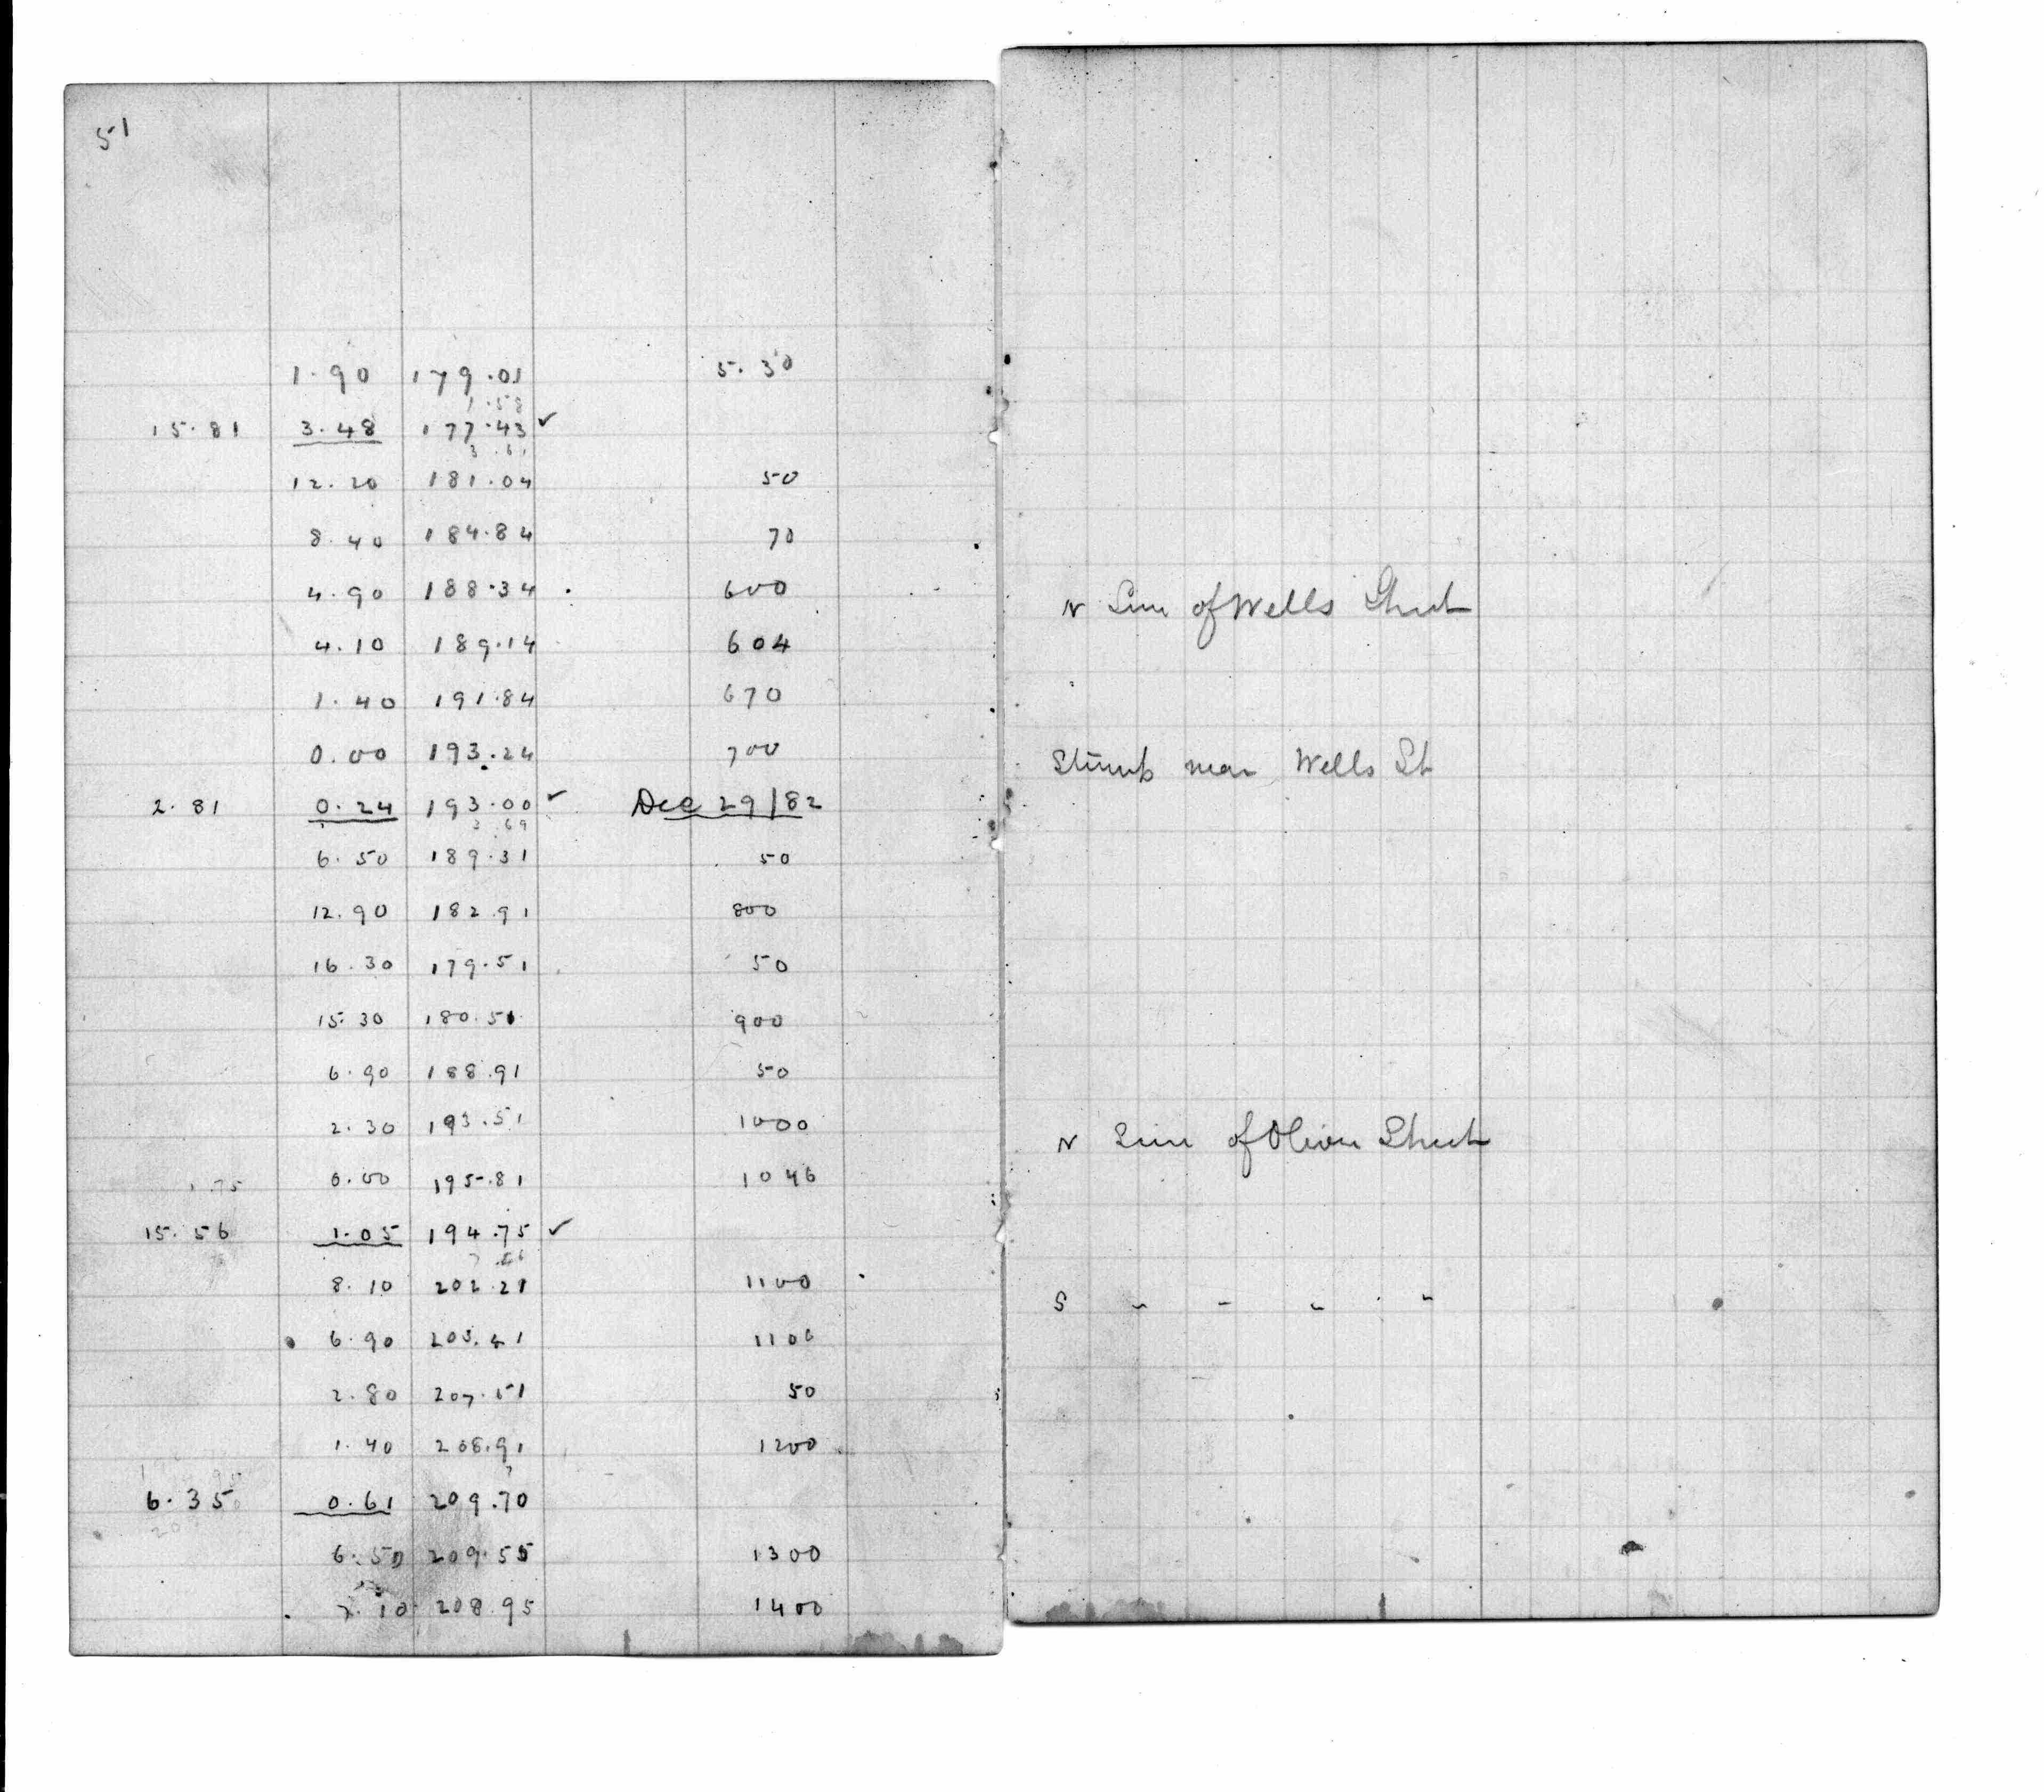 51
1.90 179.01 5.30
1.58
15.81 3.48 177.43 ✓
3.61
12.20 181.04 50
8.40 184.84 70
4.90 188.34 600 N Line of Wells Street
4.10 189.14 604
1.40 191.84 670
0.00 193.24 700 Stump near Wells St
2.81 0.24 193.00 ✓ Dec 29/82
3.69
6.50 189.31 50
12.90 182.91 800
16.30 179.51 50
15.30 180.51 900
6.90 188.91 50
2.30 193.51 1000 N Line of Oliver Street
0.00 195.81 1046
.75
15.56 1.05 194.75 ✓
8.10 202.21 1100 S " " " "
6.90 203.41 1106
2.80 207.51 50
1.40 208.91 1200
6.35 0.61 209.70
6.50 209.55 1300
7.10 208.95 1400